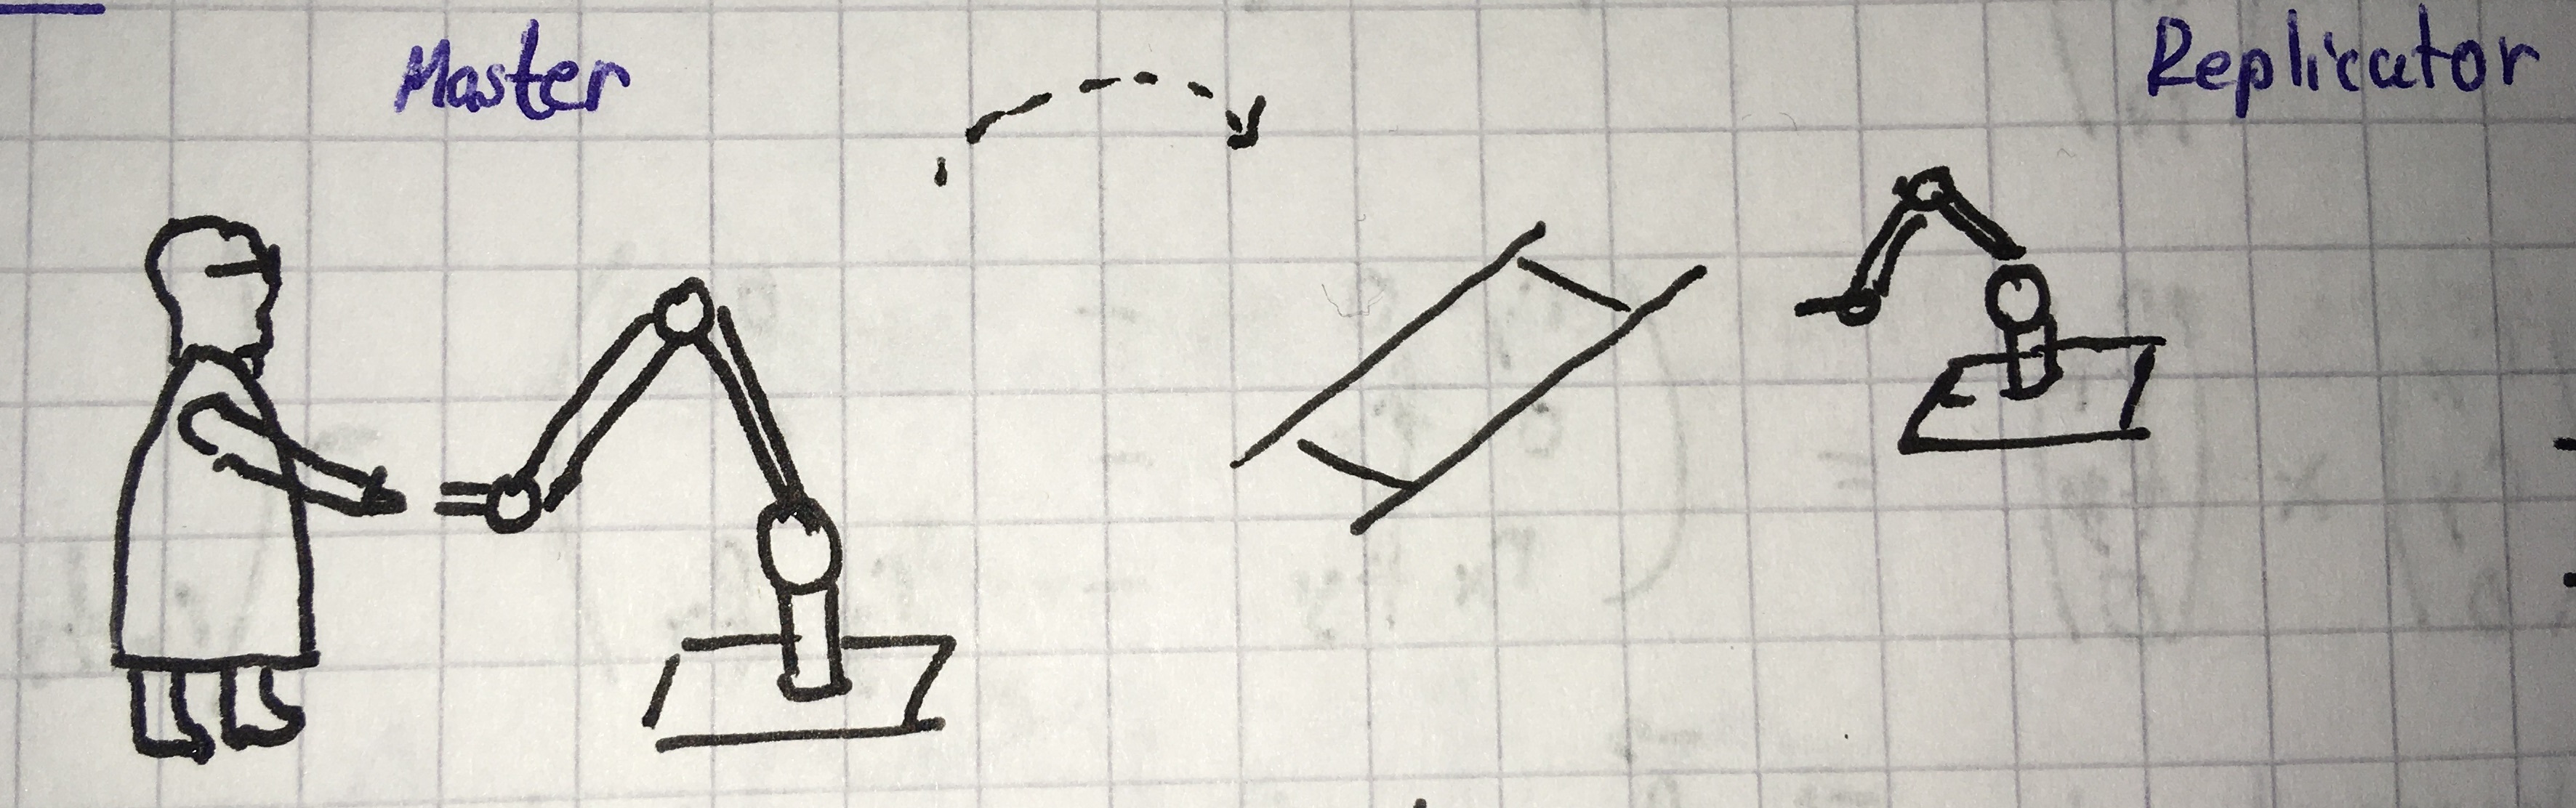 Master
Replicator